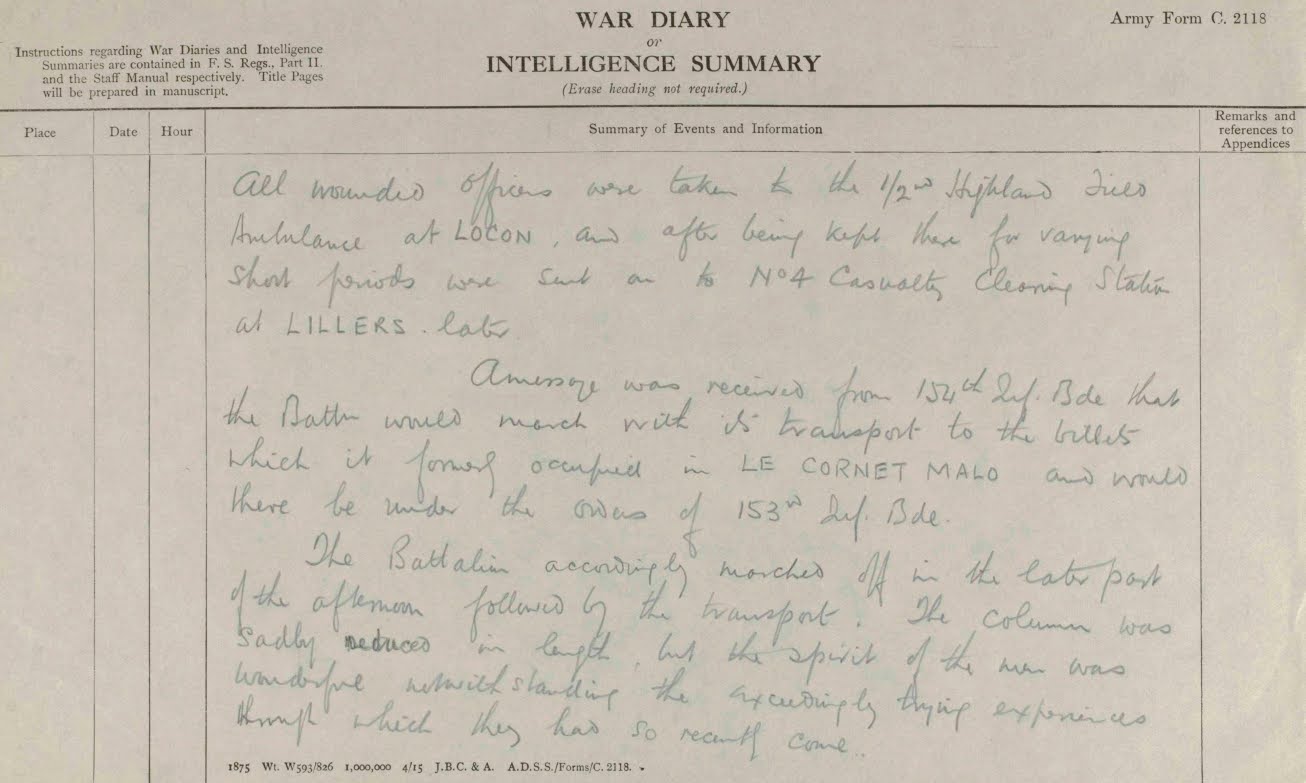 WAR DIARY
or
INTELLIGENCE SUMMARY
(Erase heading not required.)
Army Form C. 2118
Instructions regarding War Diaries and Intelligence
Summaries are contained in F. S. Regs., Part II.
and the Staff Manual respectively. Title Pages
will be prepared in manuscript.
Place
Date
Hour
Summary of Events and Information
Remarks and
references to
Appendices
All wounded officers were taken to the 1/2nd Highland Field
Ambulance at LOCON, and after being kept there for varying
short periods were sent on to No 4 Casualty Clearing Station
at LILLERS. later
A message was received from 154th Inf. Bde that
the Battn would march with its transport to the billets
which it formerly occupied in LE CORNET MALO and would
there be under the orders of 153rd Inf. Bde.
The Battalion accordingly marched off in the later part
of the afternoon followed by the transport. The column was
sadly reduced in length, but the spirit of the men was
wonderful notwithstanding the exceedingly trying experiences
through which they had so recently come.
1875 Wt. W593/826 1,000,000 4/15 J.B.C. & A. A.D.S.S./Forms/C. 2118.